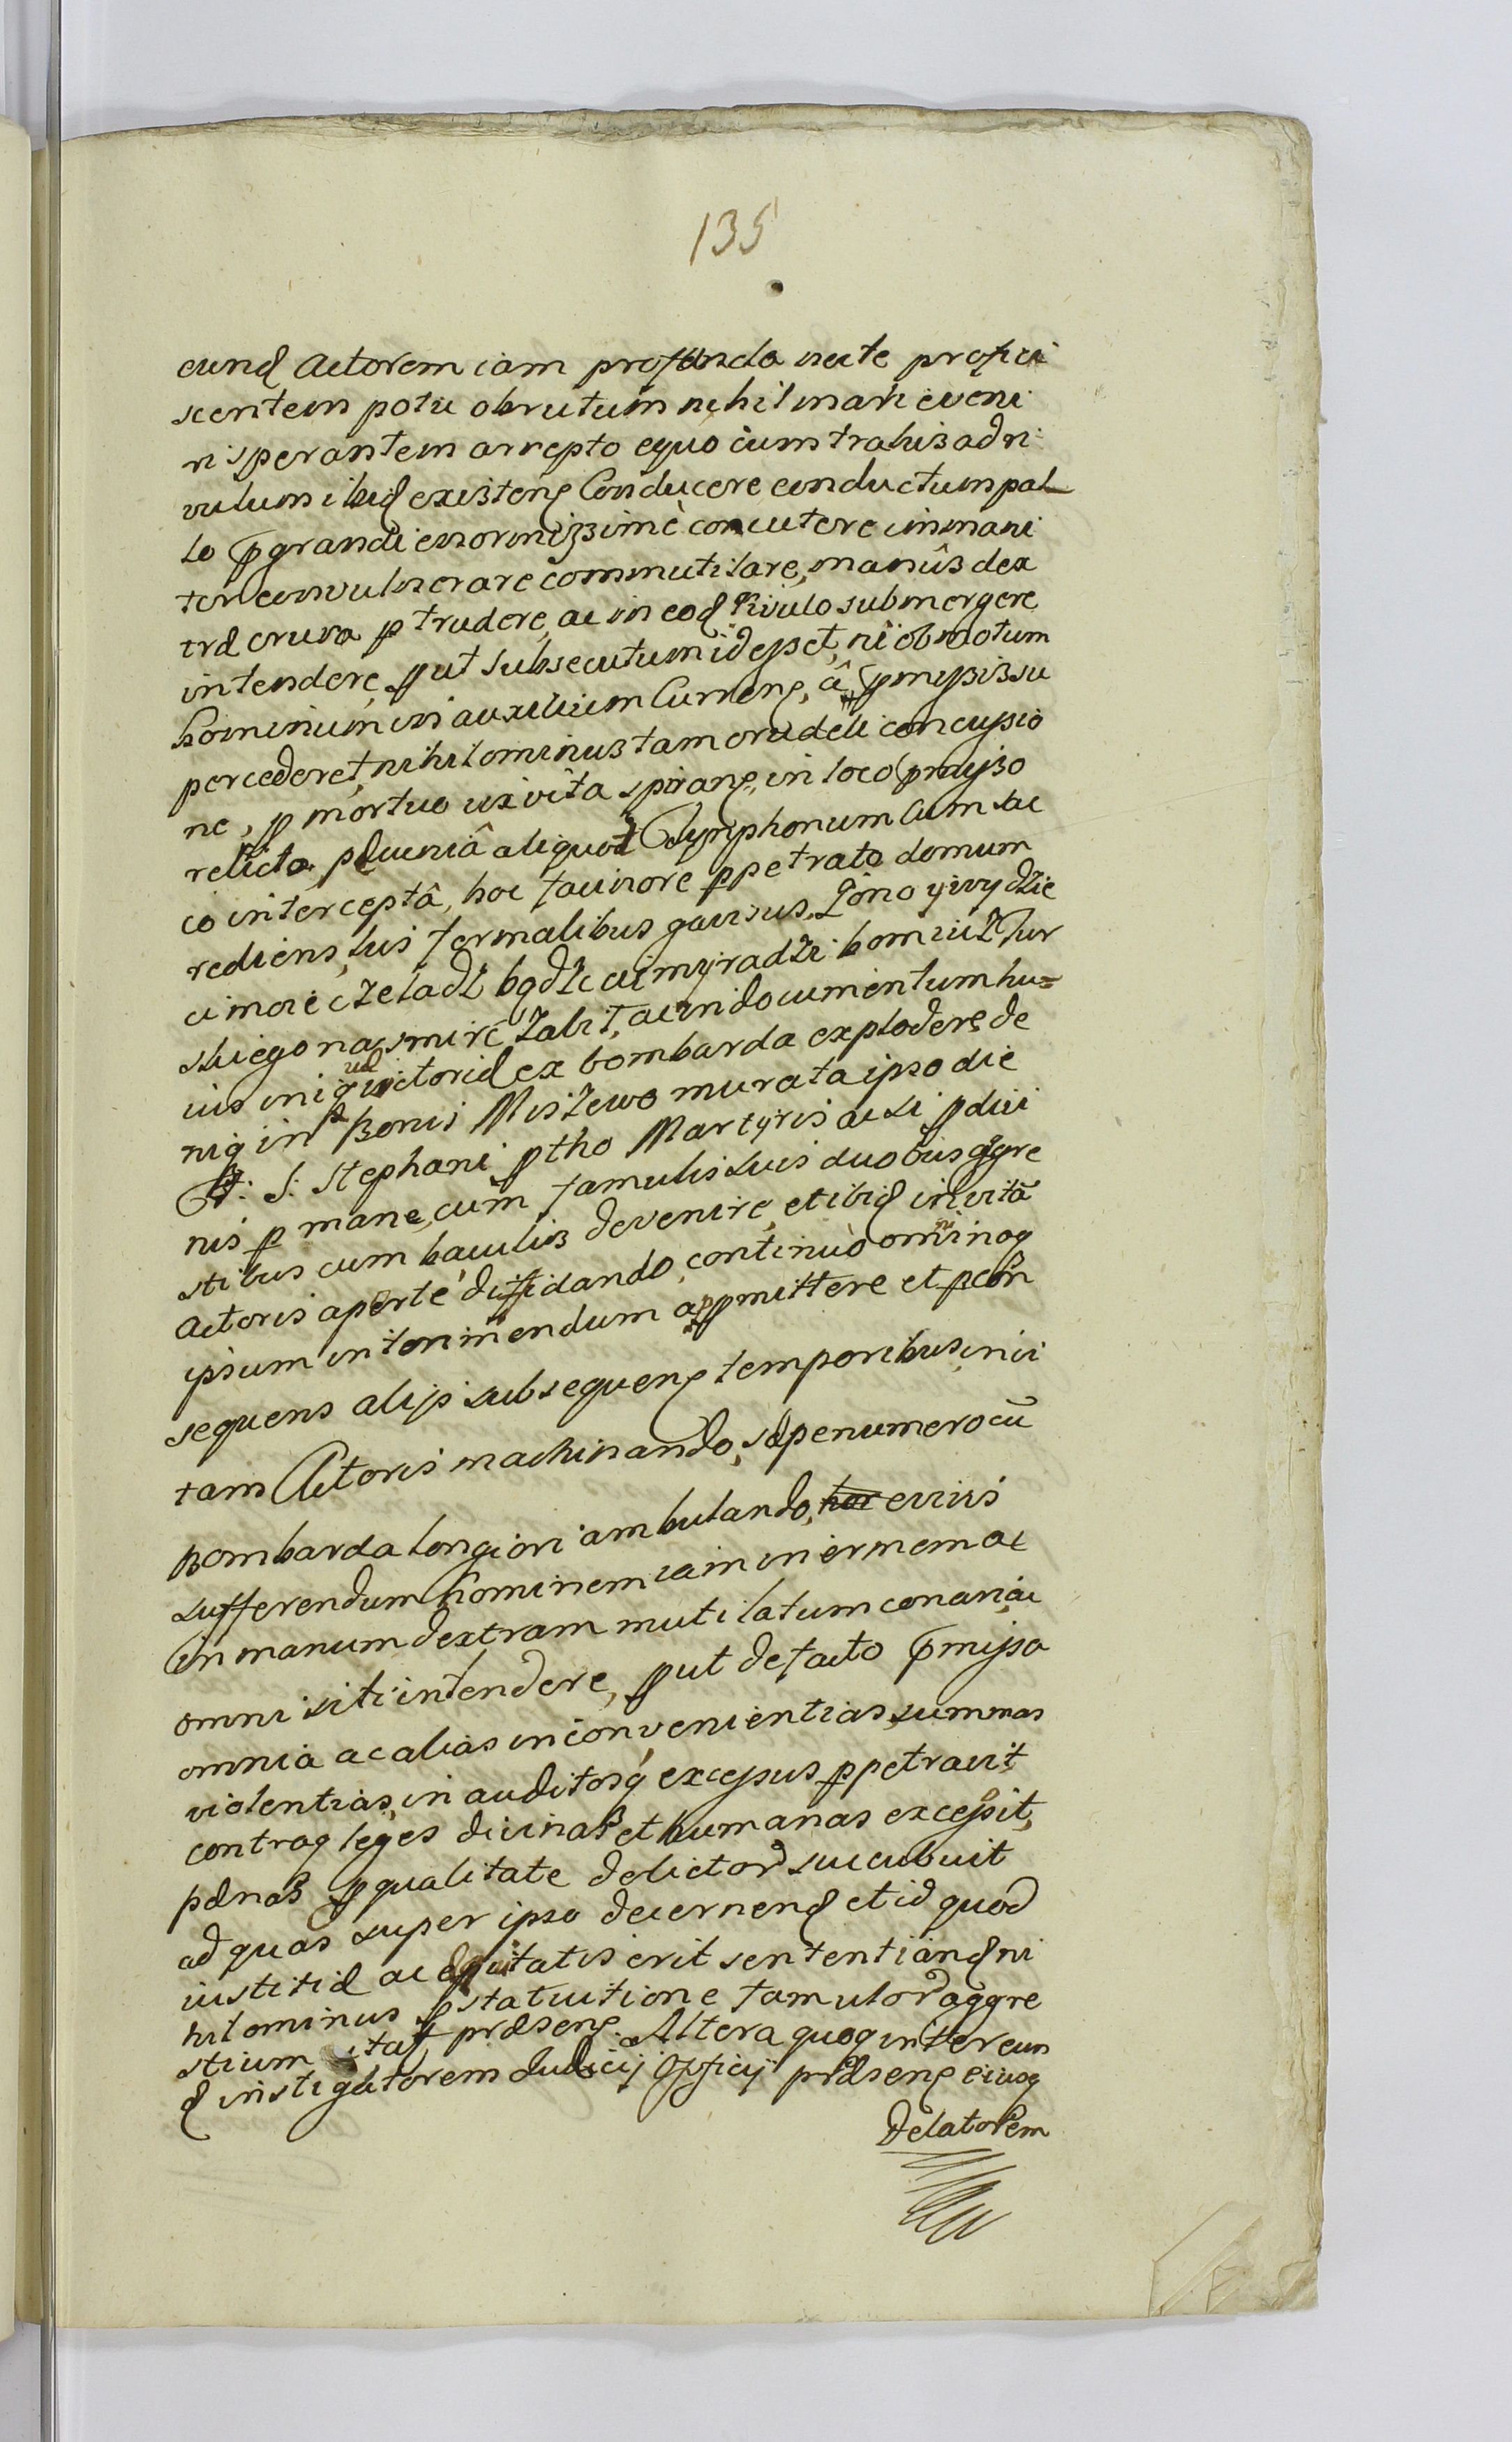 135
eund Actorem iam profunda nocte profici
scentem potu obrutum nihil mali eveni
ri sperantem arrepto equo cum trahis ad ri
vulum ibid existen Conducere conductum pal
lo pgrandi enormissimè concutere immani
ter convulnerare commutilare, manûs dex
træ crura ptrudere, ac in eod Rivulo submergere
intendere, put subsecutum id esset, ni ob motum
hominum in auxilium Curren, â pmissis su
percederet, nihilominus tam crudeli concussio
ne, p mortuo vix vita spiran, in loco pmisso
relicto pecuniâ aliquot Tymphonum Cum sac
co interceptâ, hoc facinore ppetrato domum
rediens, his formalibus gavisus. Jono y wydzie
ci moie czeladz bądzcie mi radzi bom iuz Tur
skiego na smirc zabił, ac in documentum hu=
ius iniq victoriæ ex bombarda explodere, de
niq in Bonis Miszewo murata ipso die
F: S: Stephani ptho Martyris ac si pdiei
nis p mane, cum famulis suis duobus aggre
stibus cum baculis devenire, et ibid in vitâ
Actoris aperté diffidando, continuò ominoq
ipsum interimendum appmittere et pcon
sequens alijs subsequen temporibus, in vi
tam Actoris machinando, sæpenumero cū
Bombarda longiori ambulando, eiuis
sufferendum hominem iam inermem ac
in manum dextram mutilatum conari, ac
omni siti intendere, put de facto pmissa
omnia ac alias inconvenientias, summas
violentias, in auditosq excessus ppetravit
contraq leges divinas et humanas excessit,
pænas p qualitate delictor sucubuit
ad quas super ipso decernend et id quod
iustitiæ ac æquitatis erit sententiand ni
hilominus p statuitione famulor aggre
stium præsen. Altera quoq inter eun
d instigatorem Iudicij Officij præsen eiuoq
Delatorem